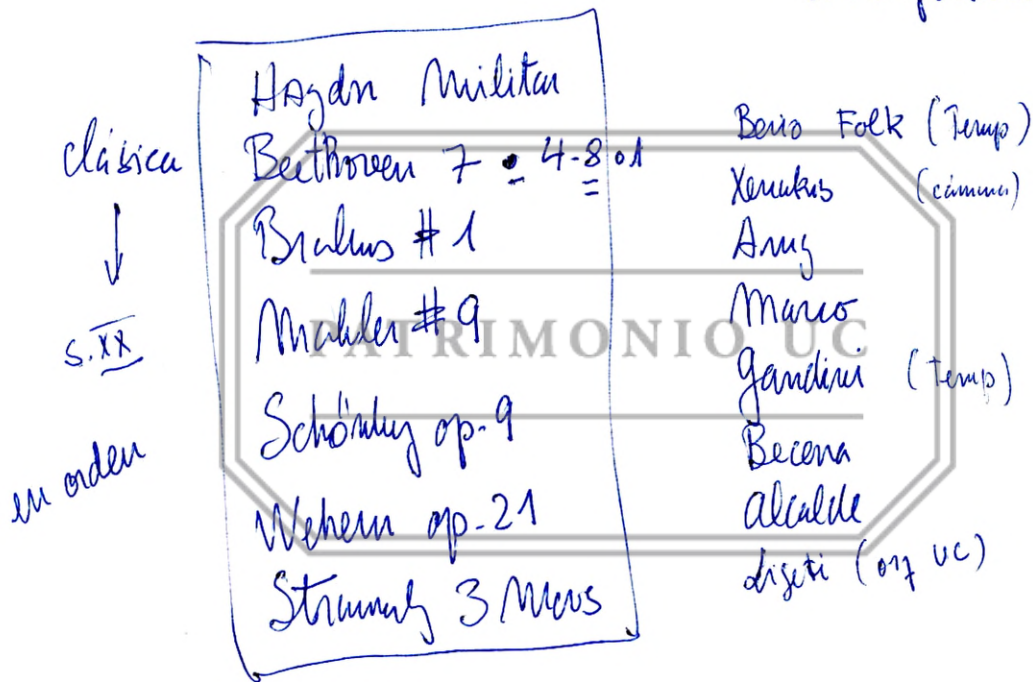 clásica
↓
s. XX
en orden
Haydn Militar
Beethoven 7 • 4-8 o 1
Brahms # 1
Mahler # 9
Schönberg op. 9
Webern op. 21
Stravinsky 3 Movs
Berio Folk (Temp)
Xenakis (cámara)
Marco
Gandini (Temp)
Becerra
Alcalde
Ligeti (orq UC)
PATRIMONIO UC